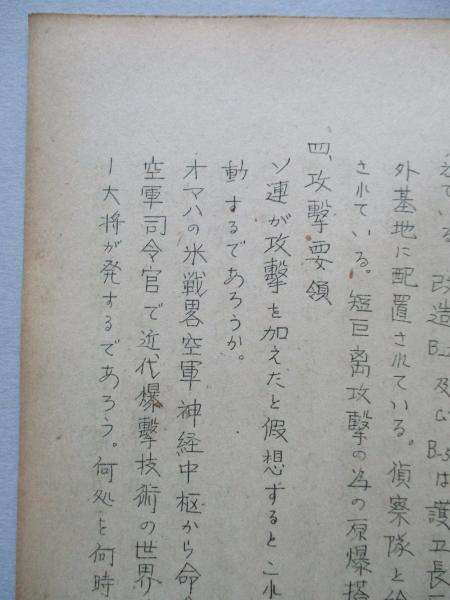 えている。改造B-2及びB-5は護卫長
外基地に配置されている。偵察隊と給
されている。短巨离攻撃の為の原爆搭
四、攻撃要領
ソ連が攻撃を加えたと仮想するとこれ
動するであろうか。
オマハの米戦畧空軍神経中枢から命
空軍司令官で近代爆撃技術の世界
ー大将が発するであろう。何処を何時